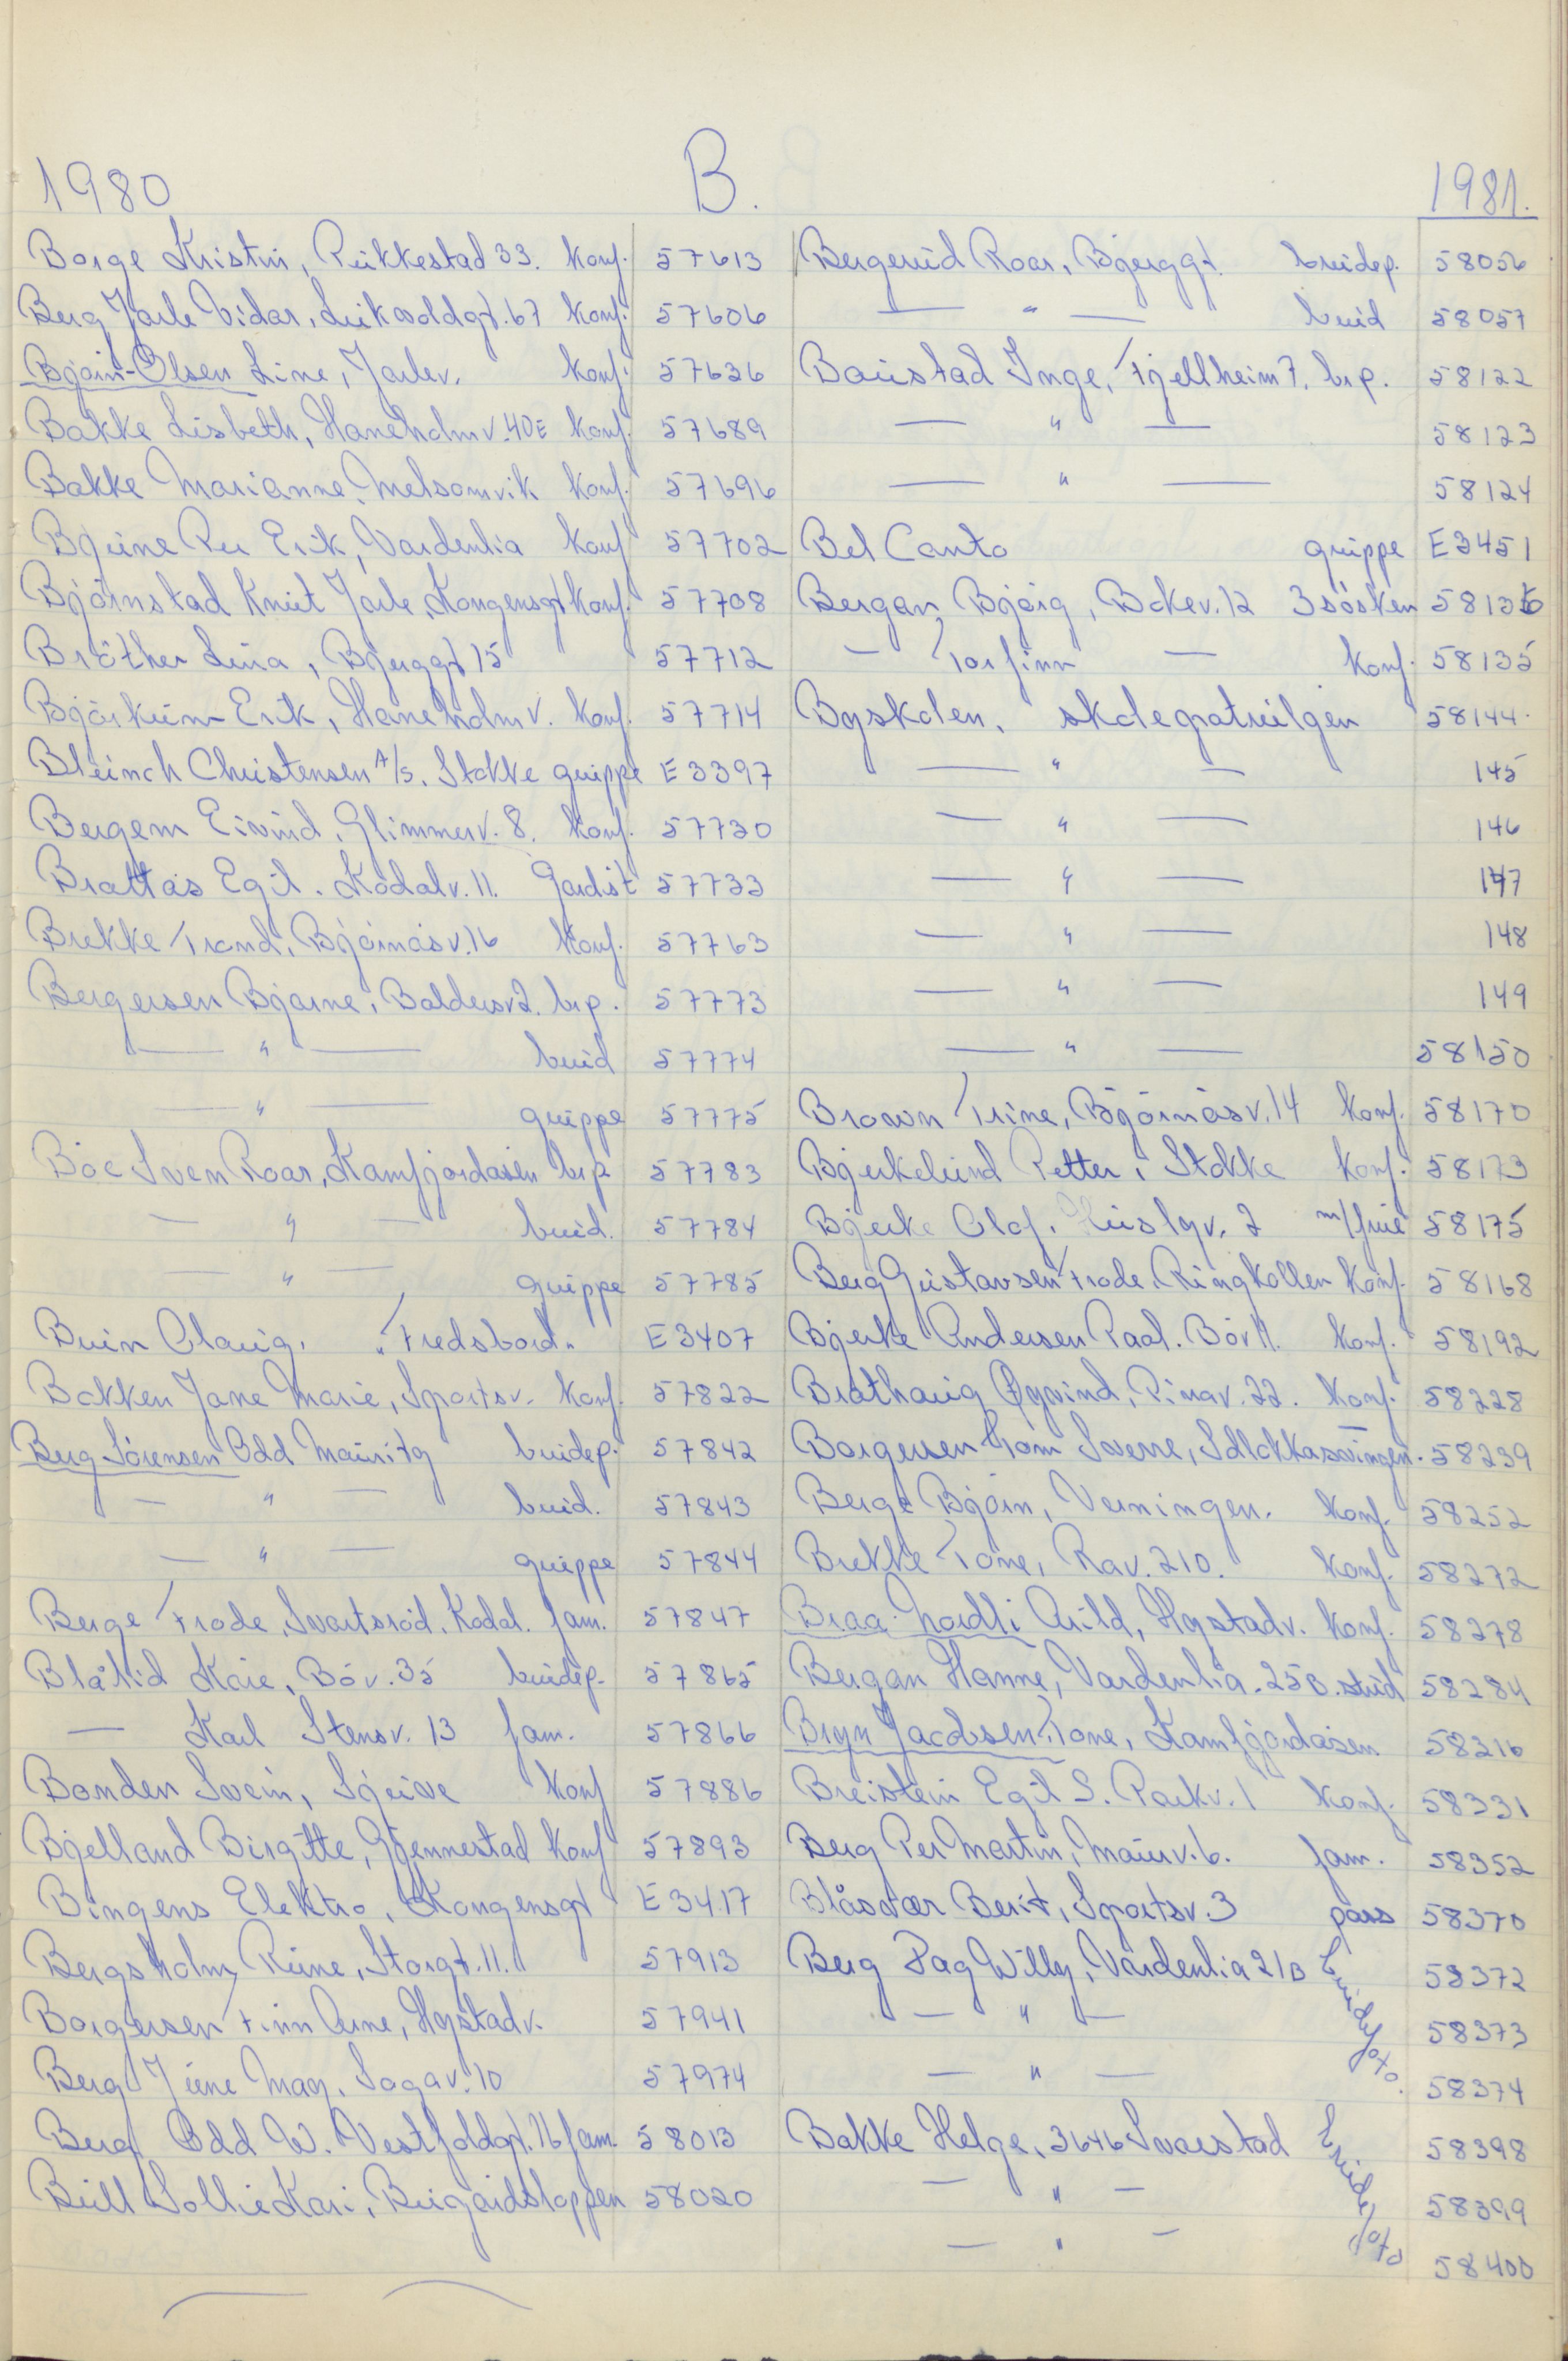 1980
B.
1981.
Borge Kristin, Rukkestad 33. Konf. 57613
Berg Jarle Vidar, Konf. 57606
Bjørn-Olsen Line, Jarlev. Konf. 57636
Bakke Lisbeth, Haneholmv. 40E Konf. 57689
Bakke Marianne, Melsomvik Konf. 57696
Bjune Per Erik, Vardenlia Konf 57702
Björnstad Knut Jarle, Kongensgt Konf. 57708
Bröther Lina, Bjerggt 15 57712
Björkum Erik, Haneholmv. Konf. 57714
Christensen A/S. Stokke gruppe E3397
Bergem Eivind, Glimmerv. 8. Konf. 57730
Brattås Egil. Kodalv. 11. Gardist 57733
Brekke Trond, Björnåsv. 16 Konf. 57763
Bergersen Bjarne, Baldersv 2. brp. 57773
— " — brud 57774
— " — gruppe 57775
Böe Sven Roar, Kamfjordåsen brp. 57783
— " — brud. 57784
— " — gruppe 57785
Bruin Olaug, "Fredsbord" E3407
Bakken Jane Marie, Sportsv. Konf. 57822
Berg Sörensen Odd Mauritz brudep. 57842
— " — brud. 57843
— " — gruppe 57844
Berge Frode, Svartsröd, Kodal. fam. 57847
Blålid Kåre, Böv. 35 brudep. 57865
— Karl Stensv. 13 fam. 57866
Bonden Svein, Sjuve Konf 57886
Bjelland Birgitte, Gjennestad Konf 57893
Bingens Elektro, Kongensgt E3417
Bergsholm, Rune, Storgt. 11. 57913
Borgersen Finn Arne, Hystadv. 57941
Berg June Mag. Sagav. 10 57974
Berg Odd W. Vestfoldgt. 76 fam. 58013
Bull Sollie Kari, Bugårdsloppen 58020
Bergerud Roar, Bjerggt. brudep. 58056
— " — brud 58057
Baustad Inge, Fjellheim 7. brp. 58122
— " — 58123
— " — 58124
Bel Canto gruppe E3451
Bergan, Björg, Bokev. 12 3 søsken 58136
— Torfinn — Konf. 58135
Byskolen, skolepatruljen 58144
— " — 145
— " — 146
— " — 147
— " — 148
— " — 149
— " — 58150
Brown Trine, Björnåsv. 14 Konf. 58170
Bjerkelund Petter, Stokke Konf. 58173
Bjerke Olaf, 2 m/frue 58175
Berg Gustavsen Frode, Ringkollen Konf. 58168
Bjerke Andersen Paal. Böv 11. Konf. 58192
Brathaug Øyvind, Rinav. 22. Konf. 58228
Borgersen Tom Sverre, Solløkkasvingen. 58239
Berge Björn, Verningen. Konf. 58252
Brekke Tone, Rav. 210. Konf. 58272
Braa-Nordli Arild, Hystadv. Konf. 58278
Bergan Hanne, Vardenlia. 25B. stud 58284
Bryn Jacobsen Tone, Kamfjordåsen 58316
Breistein Egil S. Parkv. 1 Konf. 58331
Berg Per Martin, Maurv. 6. fam. 58352
Blåsvær Berit, Sportsv. 3 pass 58370
Berg Dag Willy, Vardenlia 21B Brudefoto. 58372
— " — 58373
— " — 58374
Bakke Helge, 3646 Svarstad Brudefoto 58398
— " — 58399
— " — 58400